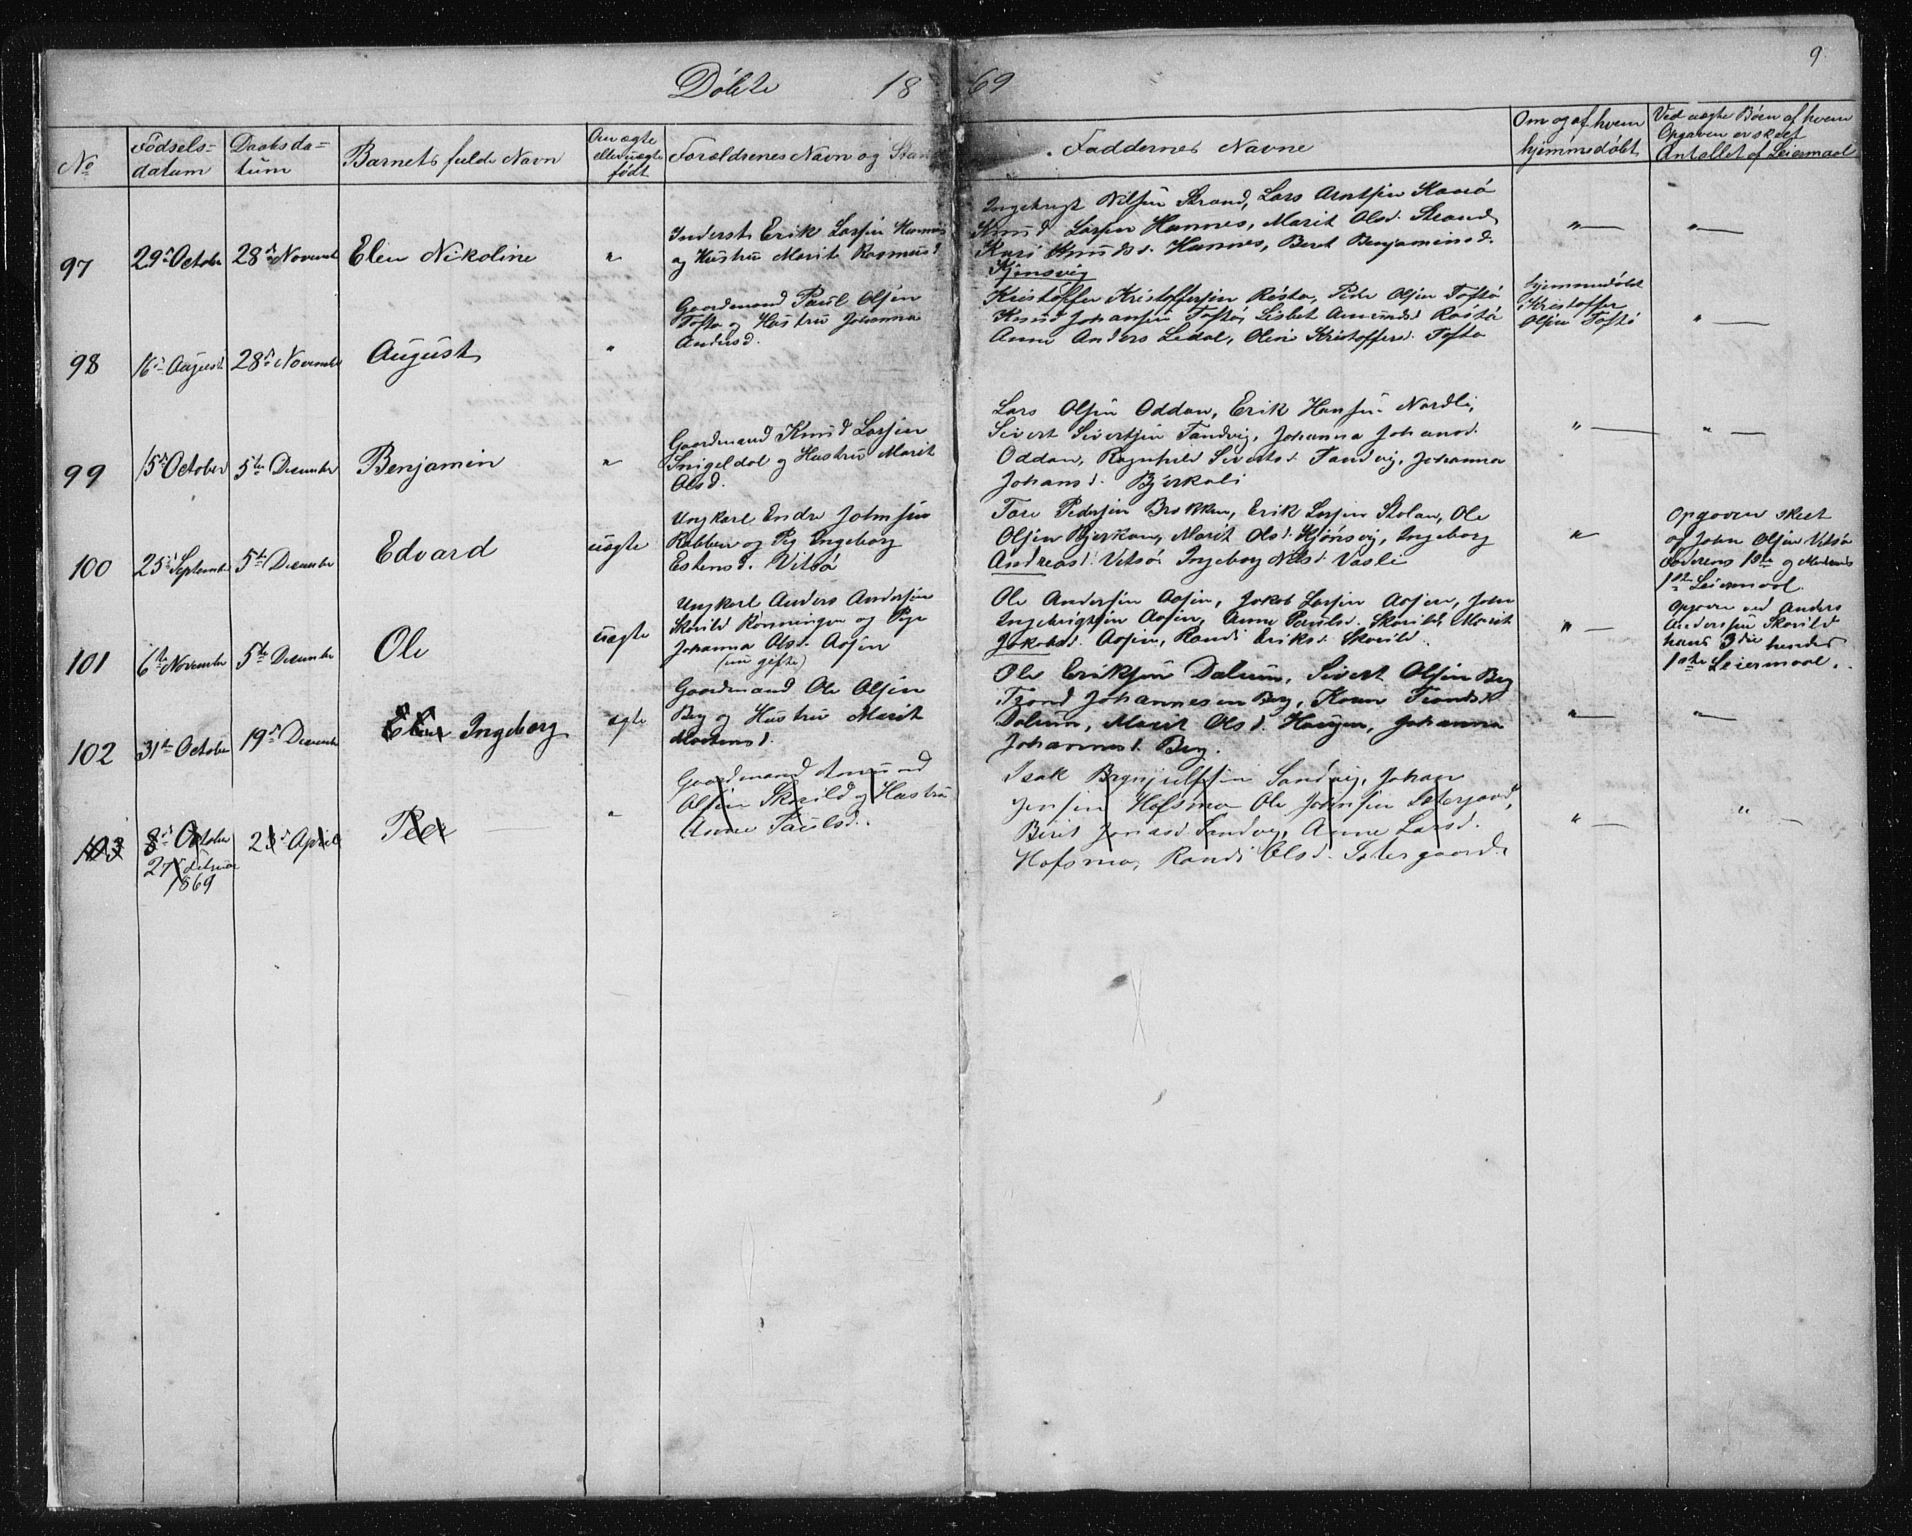 9.
Döbte 18 69
No
Födsels-
datum
Daabsda-
tum
Barnets fulde Navn
Om ægte
eller uægte
født
Forældrenes Navn og Stan
Faddernes Navne
Om og af hvem
hjemmedøbt
Ved uægte Börn af hvem
Opgaven er skeet
Antallet af Leiermaal
97
29de October
28de Novemb
Elen Nikoline
"
Inderst Erik Larsen Hamnes
og Hustru Marit Rasmusd
Ingebrigt Nilsen Strand, Lars Arntsen
Knud Larsen Hamnes, Marit Olsd. Strand
Kari Knudsd. Hamnes, Berit Benjaminsd.
Kjönsvig
"
"
98
16de August
28de Novembr
August
"
Gaardmand Paul Olsen
Toftö og Hustru Johanna
Andersd.
Kristoffer Kristoffersen Röstö, Peder Olsen Toftö
Knud Johansen Toftö, Lisbet Amundsd Röstö
Anne Anders Ledal, Oline Kristoffersd. Toftö
hjemmedöbt
Kristoffer
Olsen Toftö
"
99
15de October
5te Decembr
Benjamin
"
Gaardmand Knud Larsen
Snigeldal og Hustru Marit
Olsd.
Lars Olsen Oddan, Erik Hansen Nordli,
Sivert Sivertsen Tandvig, Johanna Johansd.
Oddan, Ragnhild Sivertsd. Tandvig, Johanna
Johansd. Bjerkali
"
"
100
25de Septembr
5te Decembr
Edvard
uægte
Ungkarl Endre Johnsen
Rabben og Pig Ingeborg
Estensd. Vitsö
Tore Pedersen Brokken, Erik Larsen Stolan, Ole
Olsen Bjerkan, Marit Olsd. Kjönsvig, Ingeborg
Andreasd. Vitsö, Ingeborg Nilsd Vasli
"
Opgaven skeet
af John Olsen Vitsö
Faderens 1ste og Moderens
1ste Leiermaal.
101
6te Novembr
5te Decembr
Ole
uægte
Ungkarl Anders Andersen
Skorild Rönningen og Pige
Johanna Olsd. Aosen
(nu gifte)
Ole Andersen Aosen, Jakob Larsen Aosen, John
Ingebrigtsen Aosen, Anne Paulsd. Skorild, Marit
Jakobsd. Aosen, Randi Eriksd. Skorild.
"
Opgaven ved Anders
Andersen Skorild
hans 3die hendes
1ste Leiermaal.
102
31te October
19de Decembr
Elen Ingeborg
ægte
Gaardmand Ole Olsen
Berg og Hustru Marit
Mortensd.
Ole Eriksen Dalum, Sivert Olsen Berg
Trond Johannesen Berg, Karen Trondsd.
Dalum, Marit Olsd. Haugen, Johanna
Johannesd. Berg.
"
"
103
8de October
27 Februar
1869
23de April
Peder
"
Gaardmand Amund
Olsen Skorild og Hustru
Anne Paulsd.
Isak Brynjulfsen Sandvig, Johan
Jensen Hofsmo Ole Johnsen Sætergaard,
Berit Jonasd. Sandvig, Anne Larsd.
Hofsmo, Randi Olsd. Sætergaard.
"
"